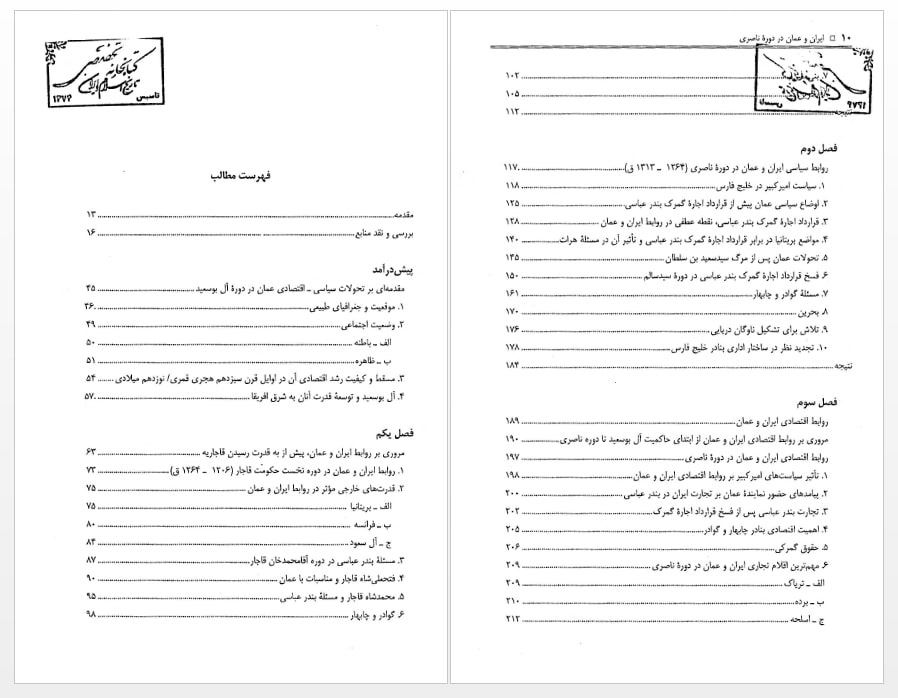 کتابخانه تخصصی
تاریخ اسلام و ایران
تاسیس ۱۳۷۶
فهرست مطالب
مقدمه ۱۳
بررسی و نقد منابع ۱۶
پیش‌درآمد
مقدمه‌ای بر تحولات سیاسی ـ اقتصادی عمان در دورهٔ آل بوسعید ۴۵
۱. موقعیت و جغرافیای طبیعی ۴۶
۲. وضعیت اجتماعی ۴۹
الف ـ باطنه ۵۰
ب ـ ظاهره ۵۱
۳. مسقط و کیفیت رشد اقتصادی آن در اوایل قرن سیزدهم هجری قمری/ نوزدهم میلادی ۵۴
۴. آل بوسعید و توسعهٔ قدرت آنان به شرق افریقا ۵۷
فصل یکم
مروری بر روابط ایران و عمان، پیش از به قدرت رسیدن قاجاریه ۶۳
۱. روابط ایران و عمان در دوره نخست حکومت قاجار (۱۲۰۶ ـ ۱۲۶۴ ق) ۷۳
۲. قدرت‌های خارجی مؤثر در روابط ایران و عمان ۷۵
الف ـ بریتانیا ۷۵
ب ـ فرانسه ۸۰
ج ـ آل سعود ۸۴
۳. مسئلهٔ بندر عباسی در دوره آقامحمدخان قاجار ۸۷
۴. فتحعلی‌شاه قاجار و مناسبات با عمان ۹۰
۵. محمدشاه قاجار و مسئلهٔ بندر عباسی ۹۵
۶. گوادر و چابهار ۹۸
۱۰ □ ایران و عمان در دورهٔ ناصری
۷. ۱۰۲
۱۰۵
نتیجه ۱۱۲
فصل دوم
روابط سیاسی ایران و عمان در دورهٔ ناصری (۱۲۶۴ ـ ۱۳۱۳ ق) ۱۱۷
۱. سیاست امیرکبیر در خلیج فارس ۱۱۸
۲. اوضاع سیاسی عمان پیش از قرارداد اجارهٔ گمرک بندر عباسی ۱۲۵
۳. قرارداد اجارهٔ گمرک بندر عباسی، نقطه عطفی در روابط ایران و عمان ۱۲۸
۴. مواضع بریتانیا در برابر قرارداد اجارهٔ گمرک بندر عباسی و تأثیر آن در مسئلهٔ هرات ۱۴۰
۵. تحولات عمان پس از مرگ سیدسعید بن سلطان ۱۴۵
۶. فسخ قرارداد اجارهٔ گمرک بندر عباسی در دورهٔ سیدسالم ۱۵۰
۷. مسئلهٔ گوادر و چابهار ۱۶۱
۸. بحرین ۱۷۰
۹. تلاش برای تشکیل ناوگان دریایی ۱۷۶
۱۰. تجدید نظر در ساختار اداری بنادر خلیج فارس ۱۷۸
نتیجه ۱۸۴
فصل سوم
روابط اقتصادی ایران و عمان ۱۸۹
مروری بر روابط اقتصادی ایران و عمان از ابتدای حاکمیت آل بوسعید تا دوره ناصری ۱۹۰
روابط اقتصادی ایران و عمان در دورهٔ ناصری ۱۹۷
۱. تأثیر سیاست‌های امیرکبیر بر روابط اقتصادی ایران و عمان ۱۹۸
۲. پیامدهای حضور نمایندهٔ عمان بر تجارت ایران در بندر عباسی ۲۰۰
۳. تجارت بندر عباسی پس از فسخ قرارداد اجارهٔ گمرک ۲۰۲
۴. اهمیت اقتصادی بنادر چابهار و گوادر ۲۰۵
۵. حقوق گمرکی ۲۰۶
۶. مهم‌ترین اقلام تجاری ایران و عمان در دورهٔ ناصری ۲۰۹
الف ـ تریاک ۲۰۹
ب ـ برده ۲۱۰
ج ـ اسلحه ۲۱۲